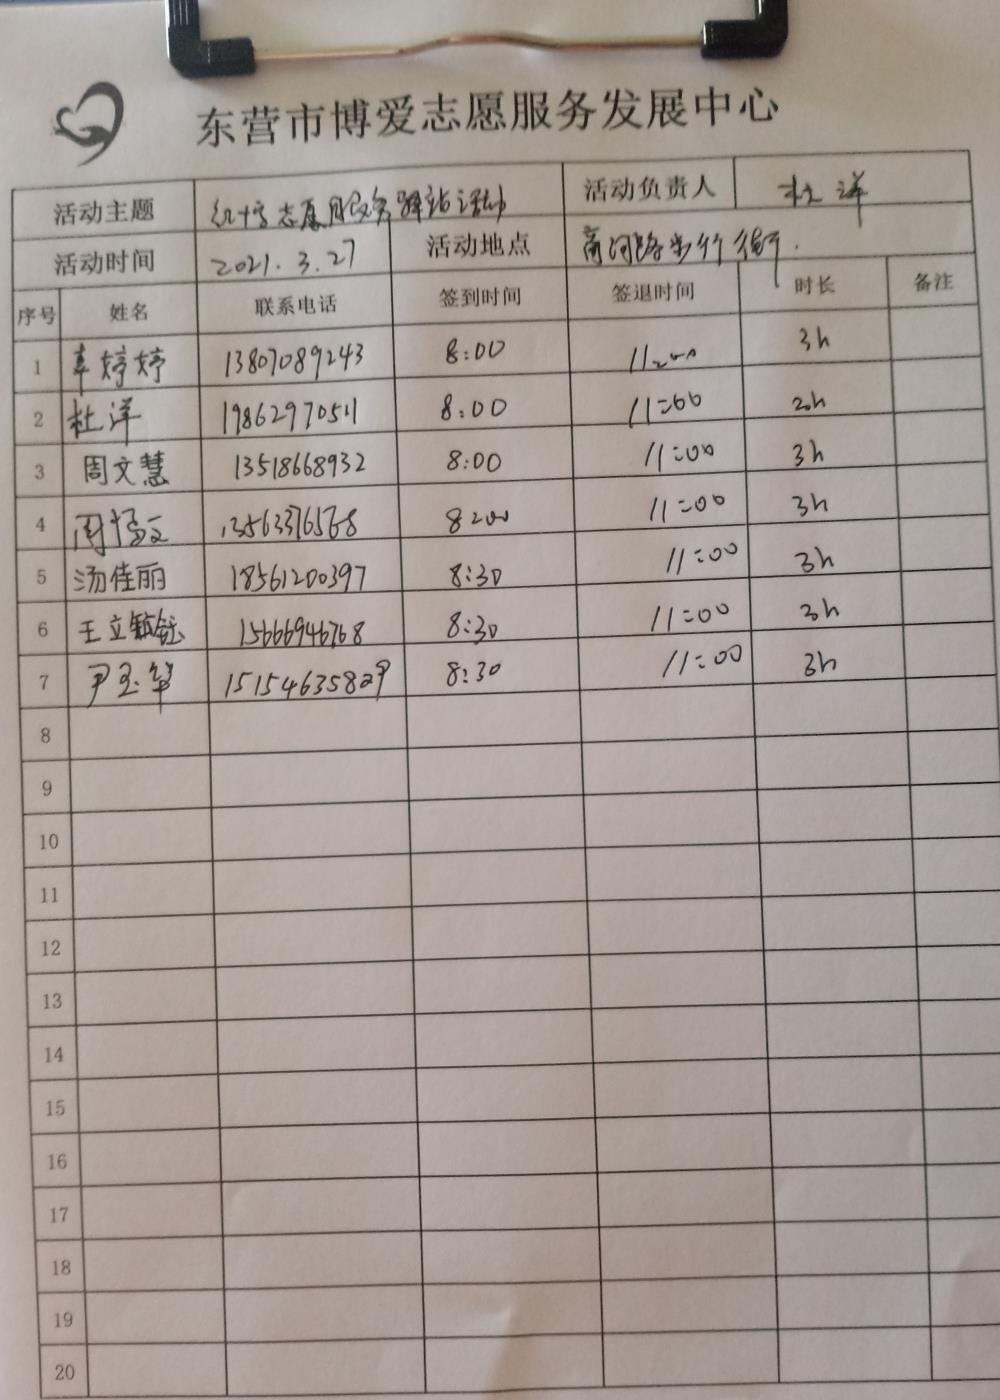 东营市博爱志愿服务发展中心
活动主题 红十字志愿服务驿站活动 活动负责人 杜洋
活动时间 2021.3.27 活动地点 商河路步行街.
序号 姓名 联系电话 签到时间 签退时间 时长 备注
1 婷婷 13807089243 8:00 11:00 3h
2 杜洋 19862970511 8:00 11:00 3h
3 周文慧 13518668932 8:00 11:00 3h
4 周 13563376568 8:00 11:00 3h
5 汤佳丽 18561200397 8:30 11:00 3h
6 王立 15666946768 8:30 11:00 3h
7 尹玉华 8:30 11:00 3h
8
9
10
11
12
13
14
15
16
17
18
19
20